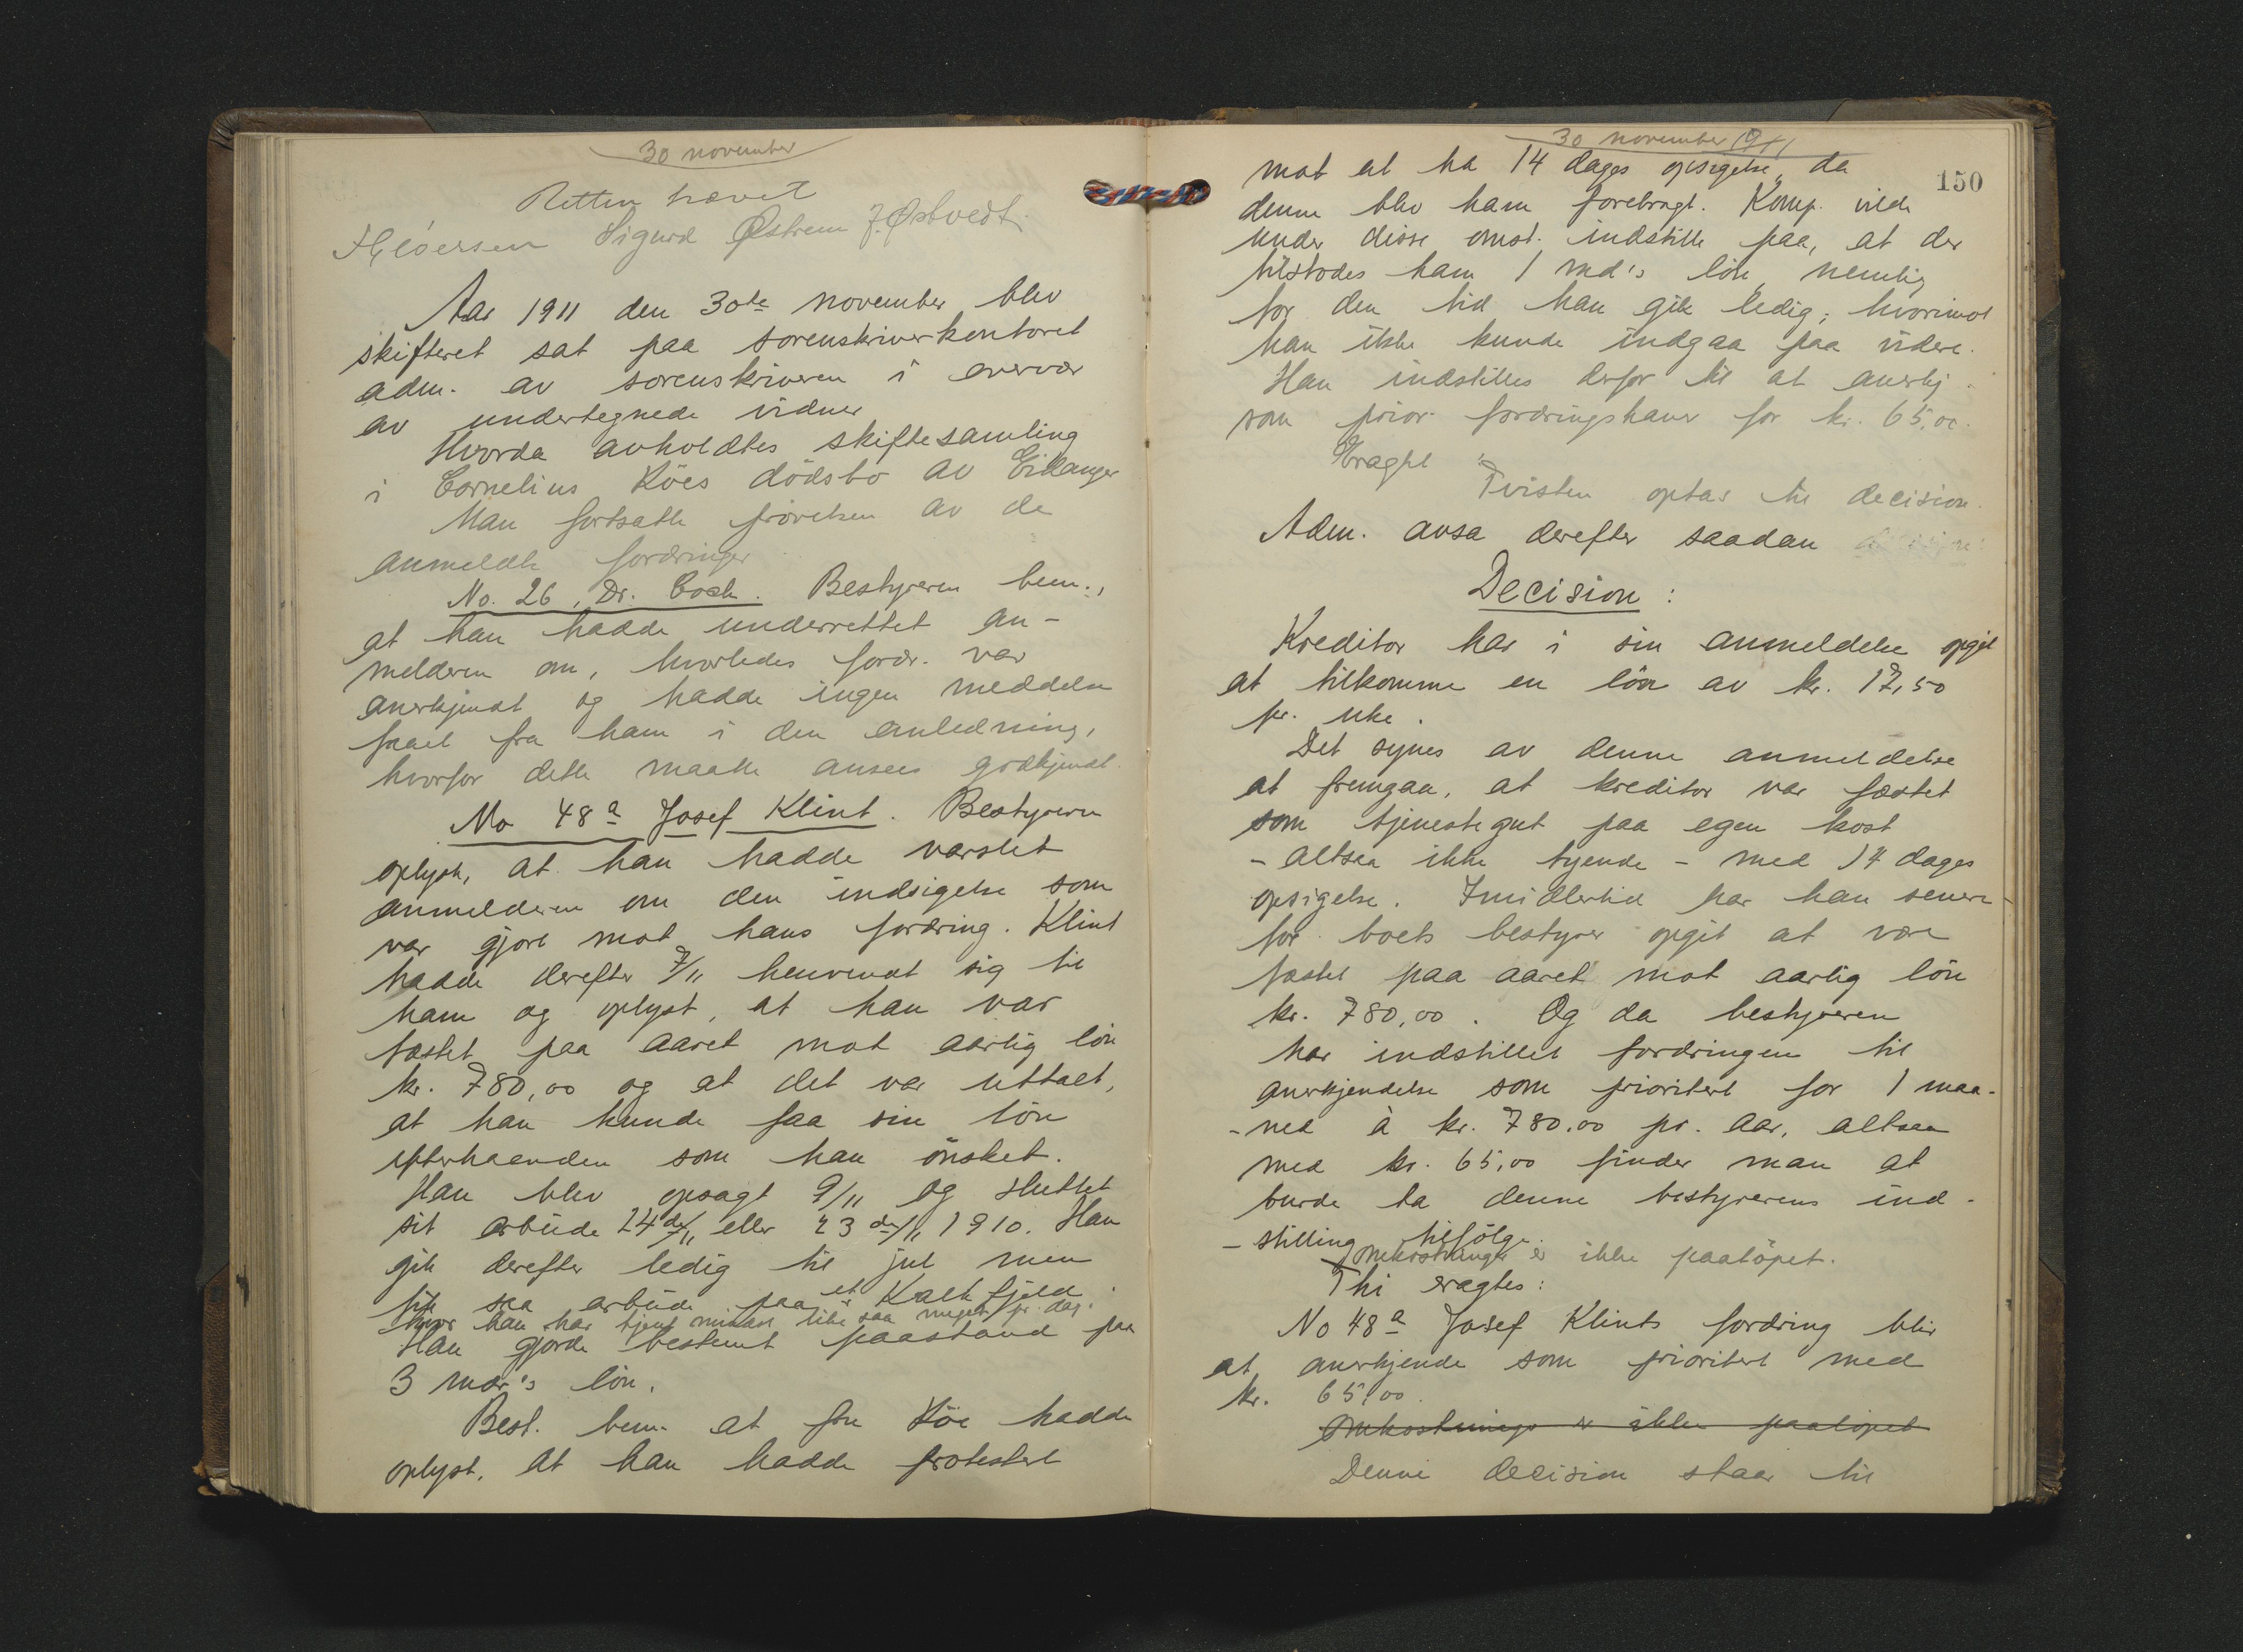 30 november
Retten hævet
Sigurd Østrem J. Østvedt.
Aar 1911 den 30te november blev
skifteret sat paa sorenskriverkontoret
adm. av sorenskriveren i overvær
av undertegnede vidner
Hvorda avholdtes skiftesamling
i Cornelius Köes dödsbo av Eidanger
Man fortsatte prövelsen av de
anmeldte fordringer
No. 26, Dr. Cock. Bestyreren bem.,
at han hadde underrettet an-
melderen om, hvorledes fordr. var
anerkjendt og hadde ingen meddelse
faaet fra ham i den anledning,
hvorfor dette maatte ansees godkjendt.
No 48a Josef Klint. Bestyreren
oplyste, at han hadde varslet
anmelderen om den indsigelse som
var gjort mot hans fordring. Klint
hadde derefter 7/11 henvendt sig til
ham og oplyst, at han var
fæstet paa aaret mot aarlig lön
kr. 780,00 og at det var uttalt,
at han kunde faa sin lön
efterhaanden som han önsket.
Han blev opsagt 9/11 og sluttet
sit arbeide 24de/11 eller 23de/11 1910. Han
gik derefter ledig til jul men
fik saa arbeide paa et Kalkfjeld
hvor han har tjent mindst like saa meget pr. dag.
Han gjorde bestemt paastand paa
3 mdr's lön.
Best. bem. at fru Köe hadde
oplyst, at han hadde protestert
30 november 1911
150
mot at ha 14 dages opsigelse, da
denne blev ham forebragt. Komp. vilde
under disse omst. indstille paa, at der
tilstodes ham 1 md's lön, nemlig
for den tid han gik ledig; hvorimot
han ikke kunde indgaa paa videre.
Han indstilles derfor til at anerkj.
som prior. fordringshaver for kr. 65,00.
Eragtet:
Tvisten optas til decision.
Adm. avsa derefter saadan
Decision:
Kreditor har i sin anmeldelse opgit
at tilkomme en lön av kr. 17,50
pr. uke.
Det synes av denne anmeldelse
at fremgaa, at kreditor var fæstet
som tjenestegut paa egen kost
- altsaa ikke tyende - med 14 dages
opsigelse. Imidlertid har han senere
for boets bestyrer opgit at være
fæstet paa aaret mot aarlig lön
kr. 780,00. Og da bestyreren
har indstillet fordringen til
anerkjendelse som prioritert for 1 maa-
-ned à kr. 780.00 pr. aar, altsaa
med kr. 65,00 finder man at
burde ta denne bestyrerens ind-
-stilling tilfölge.
Omkostninger er ikke paalöpet.
Thi eragtes:
No 48a Josef Klints fordring blir
at anerkjende som prioritert med
kr. 65,00
Omkostninger er ikke paalöpet
Denne decision staar til